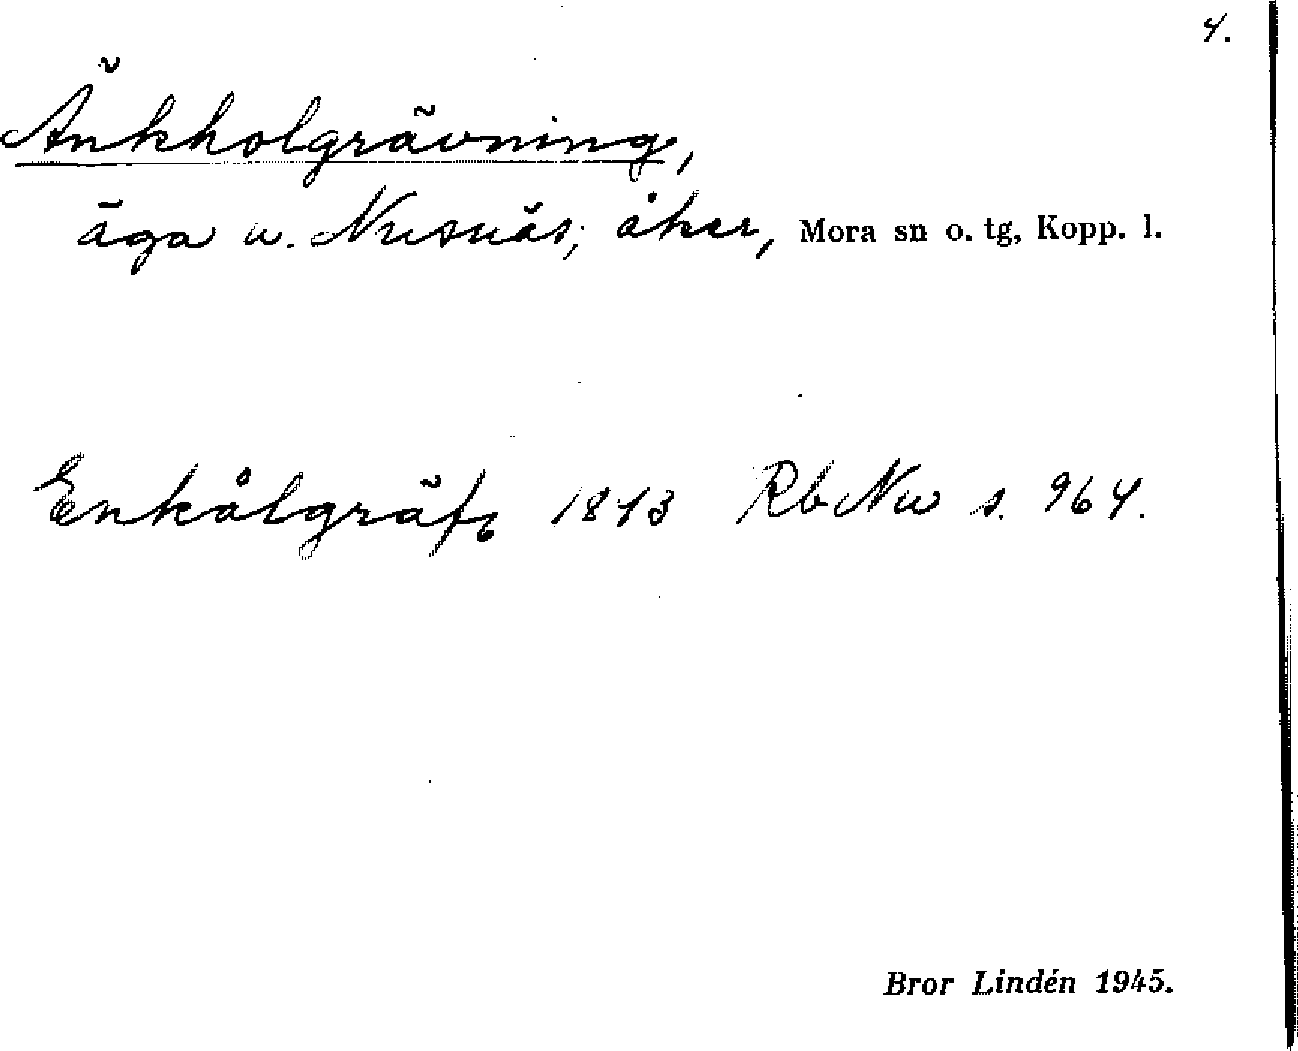 4.
Änkholgrävning,
äga u. Nusnäs; åker, Mora sn o. tg, Kopp. l.
Enkålgräfg 1843 Rb Nu s. 964.
Bror Lindén 1945.